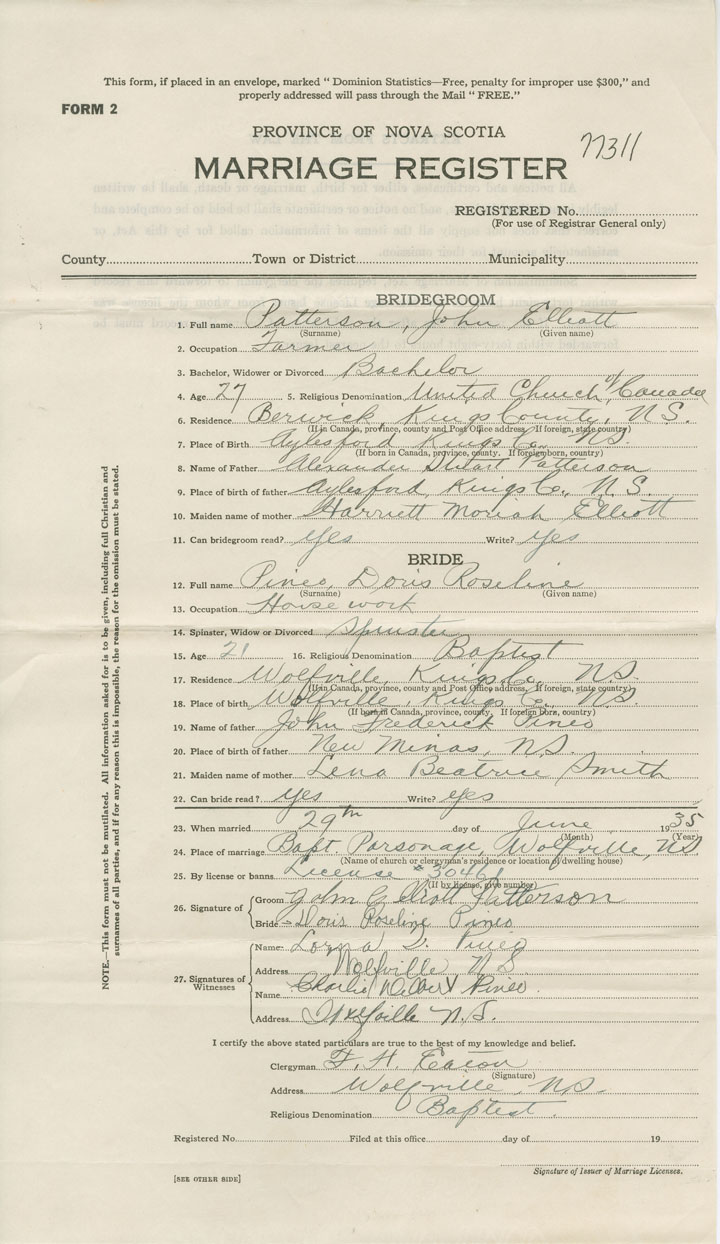 This form, if placed in an envelope, marked " Dominion Statistics—Free, penalty for improper use $300," and
properly addressed will pass through the Mail " FREE."
FORM 2
PROVINCE OF NOVA SCOTIA
77311
MARRIAGE REGISTER
REGISTERED No.
(For use of Registrar General only)
County Town or District Municipality
BRIDEGROOM
1. Full name Patterson, John Elliott
(Surname) (Given name)
2. Occupation Farmer
3. Bachelor, Widower or Divorced Bachelor
4. Age 27 5. Religious Denomination United Church of Canada
6. Residence Berwick, Kings County, N.S.
(If in Canada, province, county and Post Office address. If foreign, state country)
7. Place of Birth Aylesford Kings Co. NS
(If born in Canada, province, county. If foreign born, country)
8. Name of Father Alexander Stuart Patterson
9. Place of birth of father Aylesford, Kings Co., N.S.
10. Maiden name of mother Harriett Moriah Elliott
11. Can bridegroom read? yes Write? yes
BRIDE
12. Full name Pineo, Doris Roseline
(Surname) (Given name)
13. Occupation House work
14. Spinster, Widow or Divorced Spinster
15. Age 21 16. Religious Denomination Baptist
17. Residence Wolfville, Kings Co. NS.
(If in Canada, province, county and Post Office address. If foreign, state country)
18. Place of birth Wolfville, Kings Co. NS.
(If born in Canada, province, county. If foreign born, country)
19. Name of father John Frederick Pineo
20. Place of birth of father New Minas, N.S.
21. Maiden name of mother Lena Beatrice Smith
22. Can bride read? yes Write? yes
23. When married 29th day of June 1935
(Month) (Year)
24. Place of marriage Bapt. Parsonage, Wolfville, NS
(Name of church or clergyman's residence or location of dwelling house)
25. By license or banns License #30461
(If by license, give number)
26. Signature of
Groom John Elliott Patterson
Bride Doris Roseline Pineo
27. Signatures of Witnesses
Name D. Pineo
Address Wolfville N S
Name Charlie Pineo.
Address Wolfville N.S.
I certify the above stated particulars are true to the best of my knowledge and belief.
Clergyman F. H. Eaton
(Signature)
Address Wolfville, NS
Religious Denomination Baptist.
Registered No. Filed at this office day of 19
Signature of Issuer of Marriage Licenses.
[SEE OTHER SIDE]
NOTE.—This form must not be mutilated. All information asked for is to be given, including full Christian and
surnames of all parties, and if for any reason this is impossible, the reason for the omission must be stated.